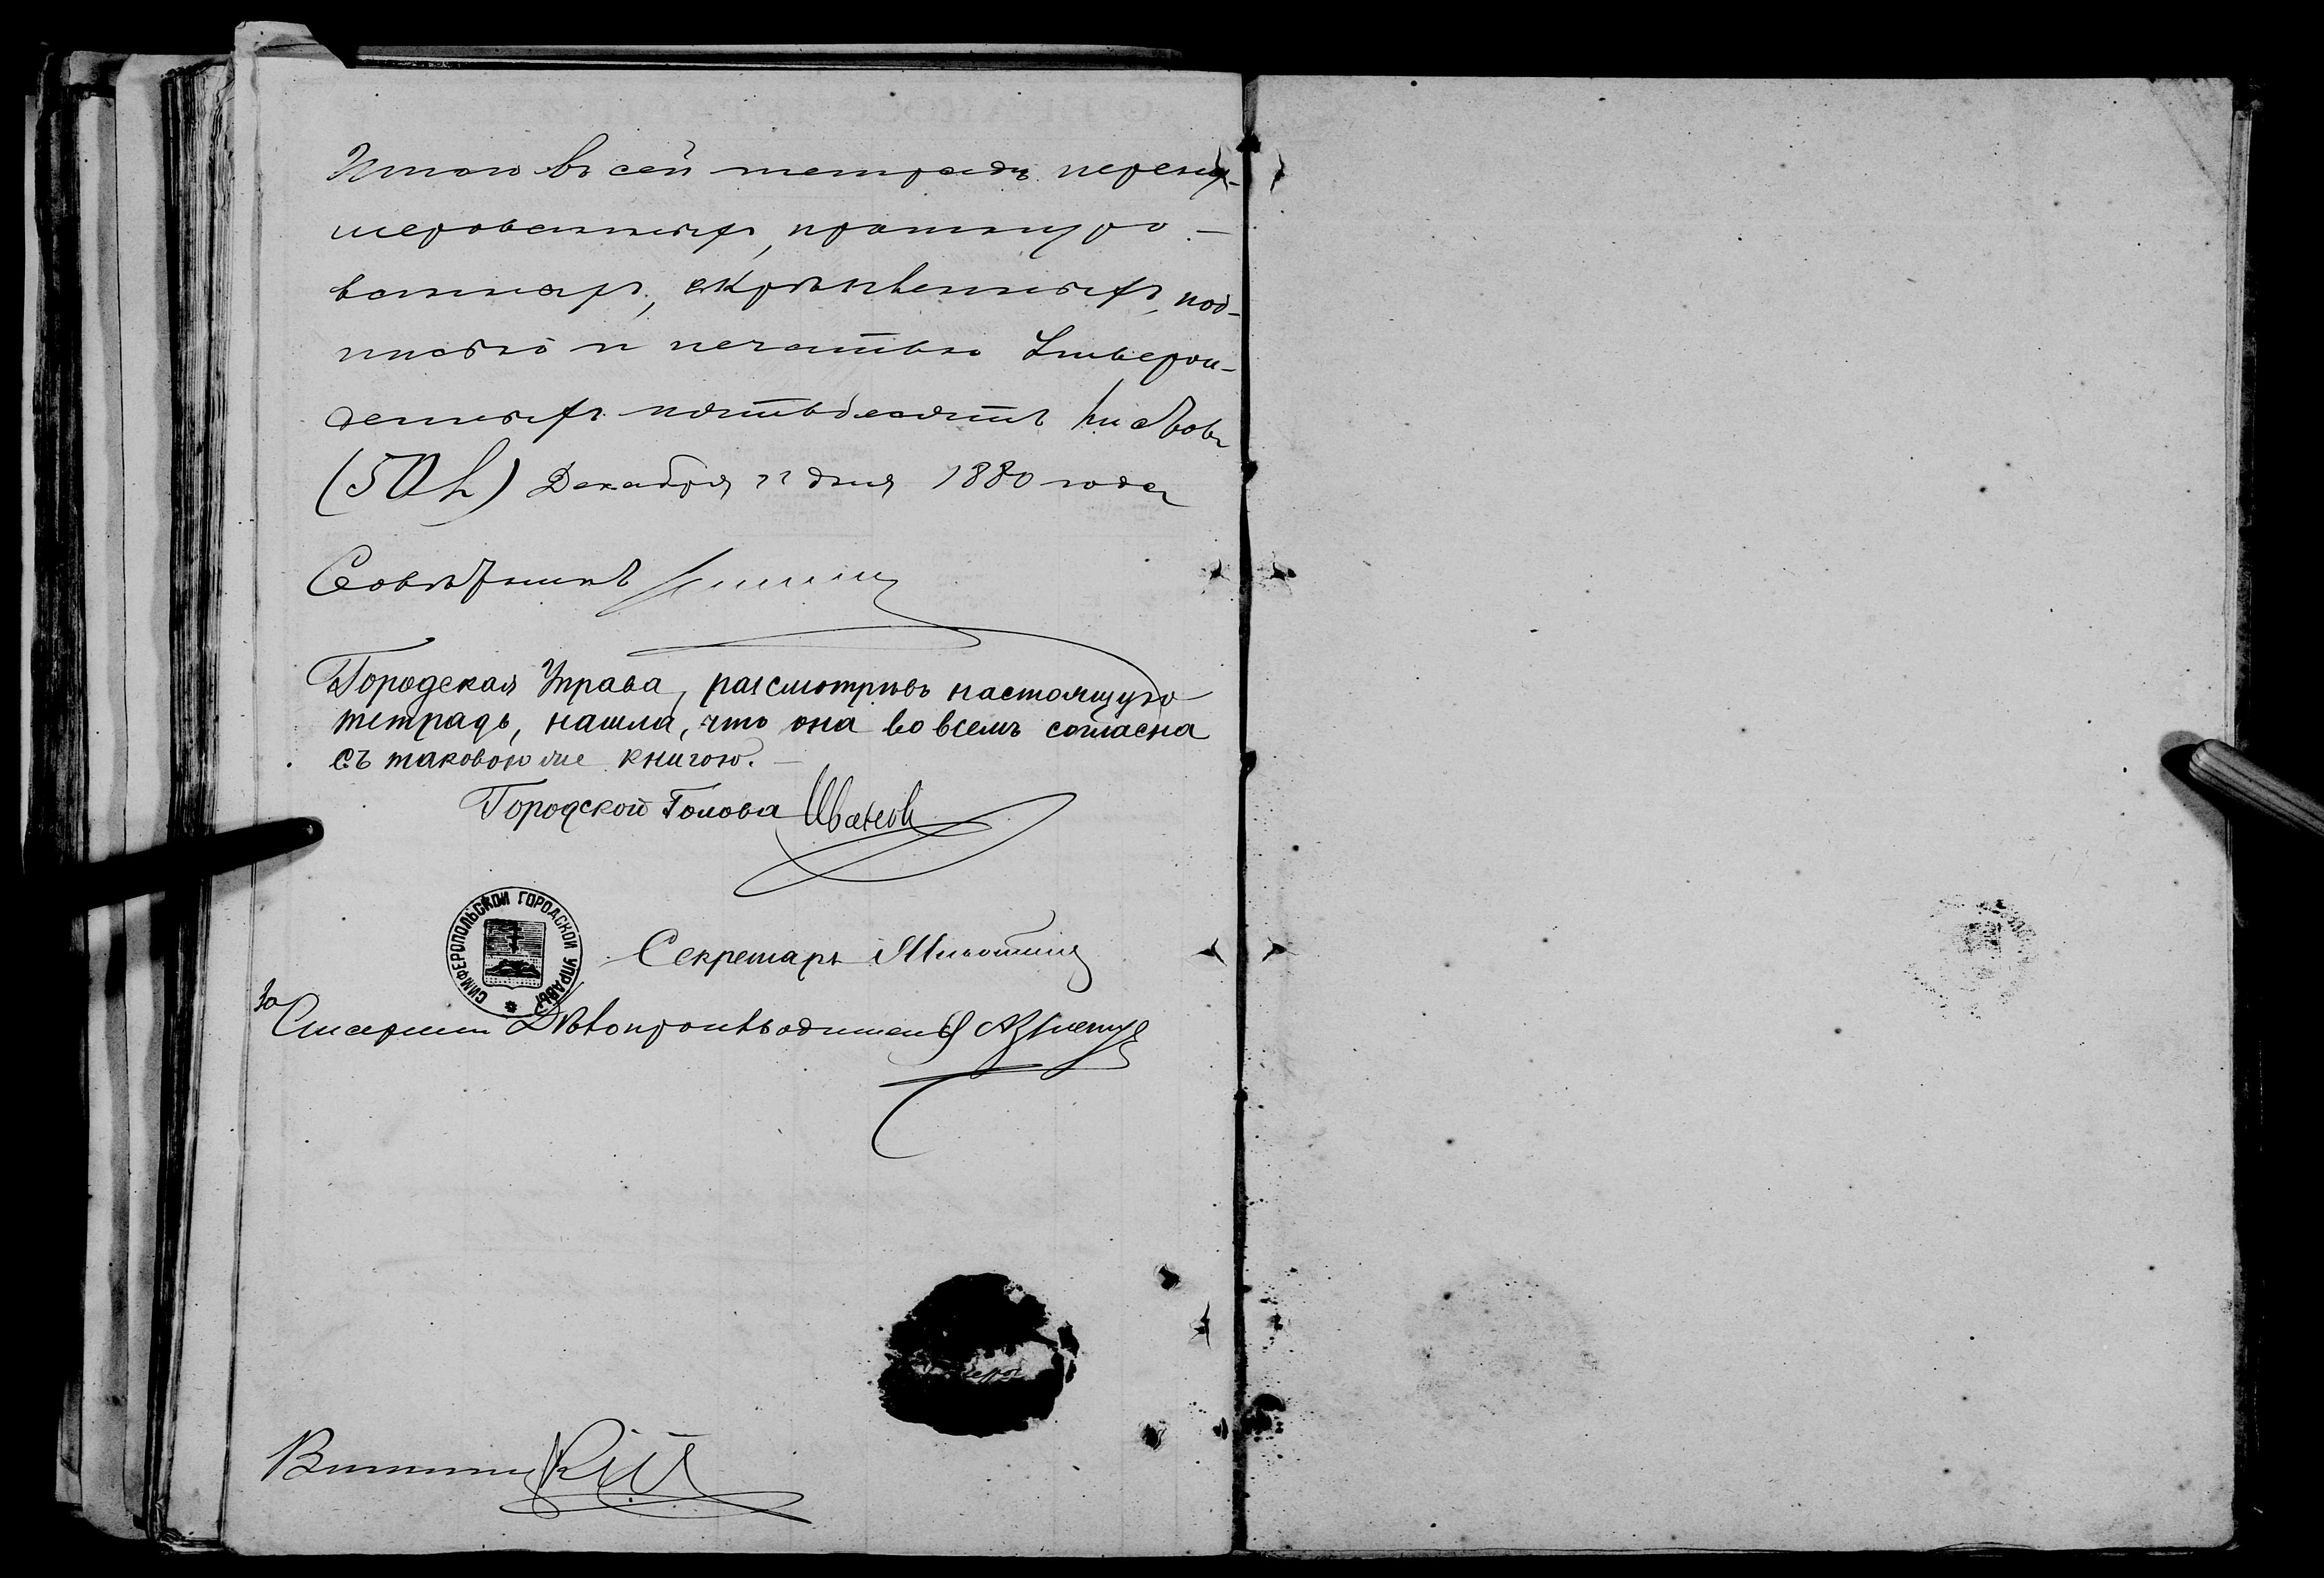 Итого въ сей тетради перену-
мерованныхъ, прошнуро-
ванныхъ, скрѣпленныхъ под-
писью и печатью утвержд-
денныхъ пятьдесятъ листовъ
(50 л) Декабря 22 дня 1880 года
Совѣтникъ
Городская Управа, разсмотрѣвъ настоящую
тетрадь, нашла, что она во всемъ согласна
съ таковою же книгою.
Городской Голова Ивановъ
СИМФЕРОПОЛЬСКОЙ ГОРОДСКОЙ УПРАВЫ
Секретарь
За Столоначальника Дѣлопроизводитель